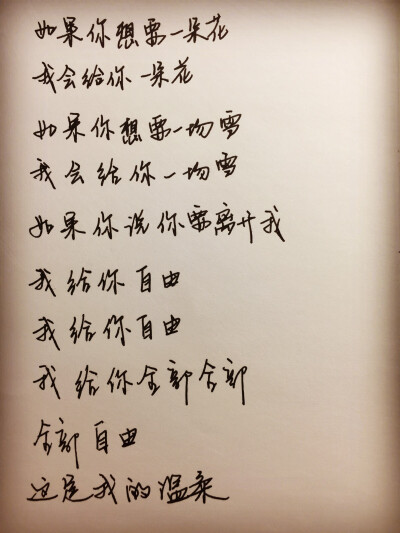 如果你想要一朵花
我会给你一朵花
如果你想要一吻雪
我会给你一吻雪
如果你说你要离开我
我给你自由
我给你自由
我给你全部全部
全部自由
这是我的温柔